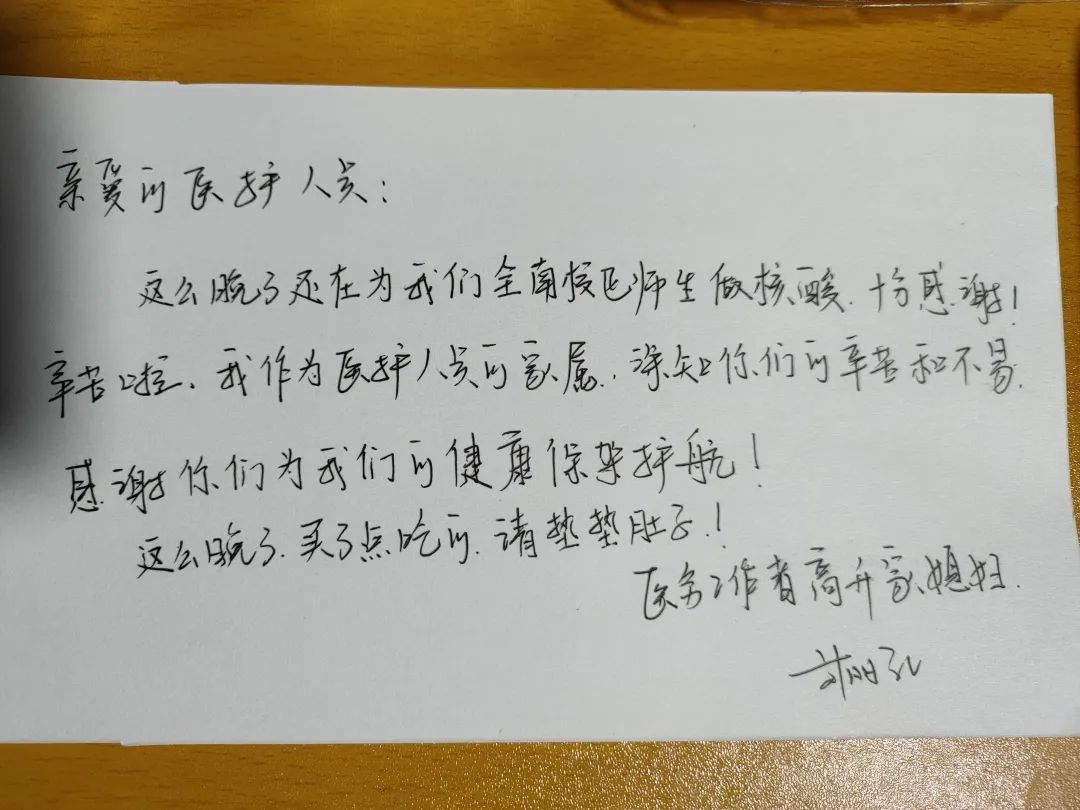 亲爱的医护人员：
这么晚了还在为我们全南校区师生做核酸，十分感谢！
辛苦啦，我作为医护人员的家属，深知你们的辛苦和不易，
感谢你们为我们的健康保驾护航！
这么晚了，买了点吃的，请垫垫肚子！
医务工作者高升家媳妇